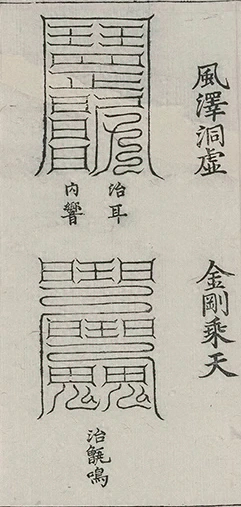 風澤洞虛
治耳
内響
金剛乘天
治甑鳴